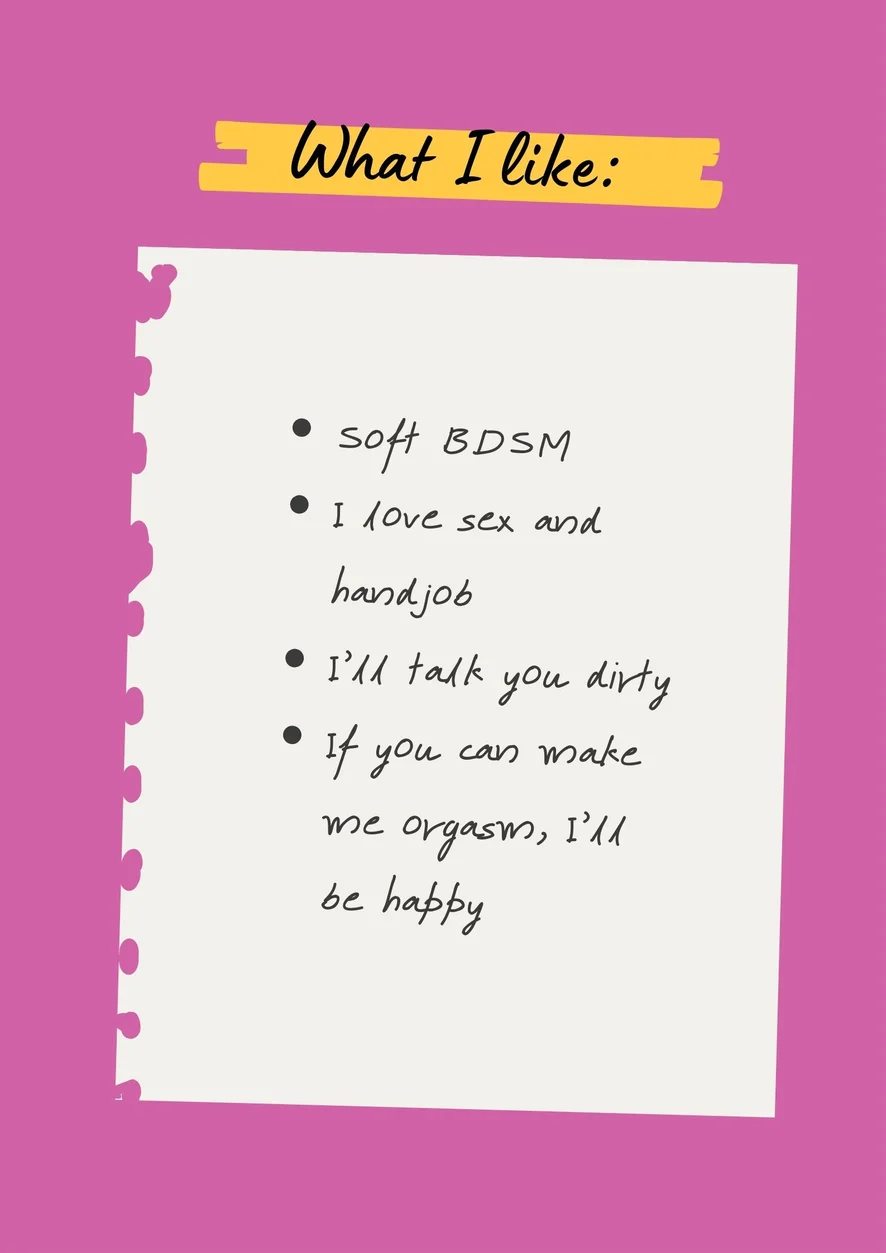 What I like:
• soft BDSM
• I love sex and
handjob
• I'll talk you dirty
• If you can make
me orgasm, I'll
be happy